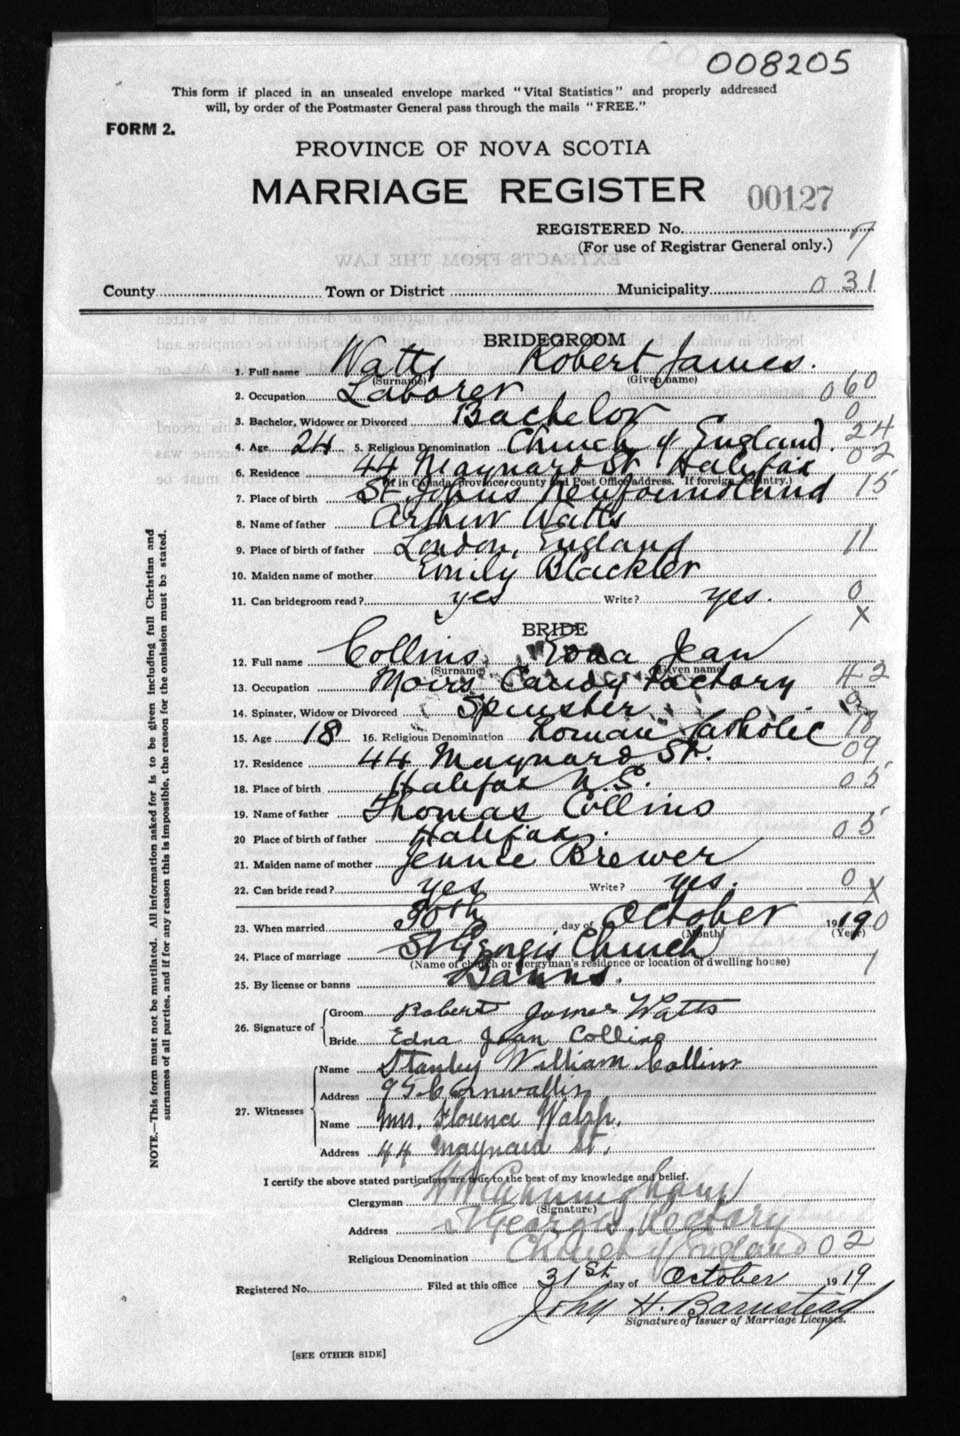 008205
This form if placed in an unsealed envelope marked "Vital Statistics" and properly addressed
will, by order of the Postmaster General pass through the mails "FREE."
FORM 2.
PROVINCE OF NOVA SCOTIA
MARRIAGE REGISTER 00127
REGISTERED No. 7
(For use of Registrar General only.)
County Town or District Municipality 031
BRIDEGROOM
1. Full name Watts Robert James.
(Surname) (Given name)
2. Occupation Laborer 060
3. Bachelor, Widower or Divorced Bachelor 0
4. Age 24 5. Religious Denomination Church of England. 24
6. Residence 44 Maynard St Halifax 02
(If in Canada, province, county and Post Office address. If foreign, country.)
7. Place of birth St Johns Newfoundland 15
8. Name of father Arthur Watts
9. Place of birth of father London, England 11
10. Maiden name of mother Emily Blackler
11. Can bridegroom read? yes Write? yes. 0
X
BRIDE
12. Full name Collins, Edna Jean
(Surname) (Given name)
13. Occupation Moirs Candy Factory 42
14. Spinster, Widow or Divorced Spinster 0
15. Age 18 16. Religious Denomination Roman Catholic 18
17. Residence 44 Maynard St. 09
18. Place of birth Halifax N.S. 05
19. Name of father Thomas Collins
20 Place of birth of father Halifax. 05
21. Maiden name of mother Jennie Brewer
22. Can bride read? yes Write? yes. 0 X
23. When married 30th day of October 1919 0
(Month) (Year)
24. Place of marriage St Georges Church 1
(Name of church or clergyman's residence or location of dwelling house)
25. By license or banns Banns.
26. Signature of Groom Robert James Watts
Bride Edna Jean Collins
27. Witnesses Name Stanley William Collins
Address 95 Cornwallis
Name Mrs. Florence Walsh.
Address 44 Maynard St.
I certify the above stated particulars are true to the best of my knowledge and belief.
Clergyman H W Cunningham
(Signature)
Address St Georges Rectory
Religious Denomination Church of England 02
Registered No. Filed at this office 31st day of October 1919
John H. Barnstead
Signature of Issuer of Marriage Licenses.
[SEE OTHER SIDE]
NOTE.—This form must not be mutilated. All information asked for is to be given including full Christian and
surnames of all parties, and if for any reason this is impossible, the reason for the omission must be stated.